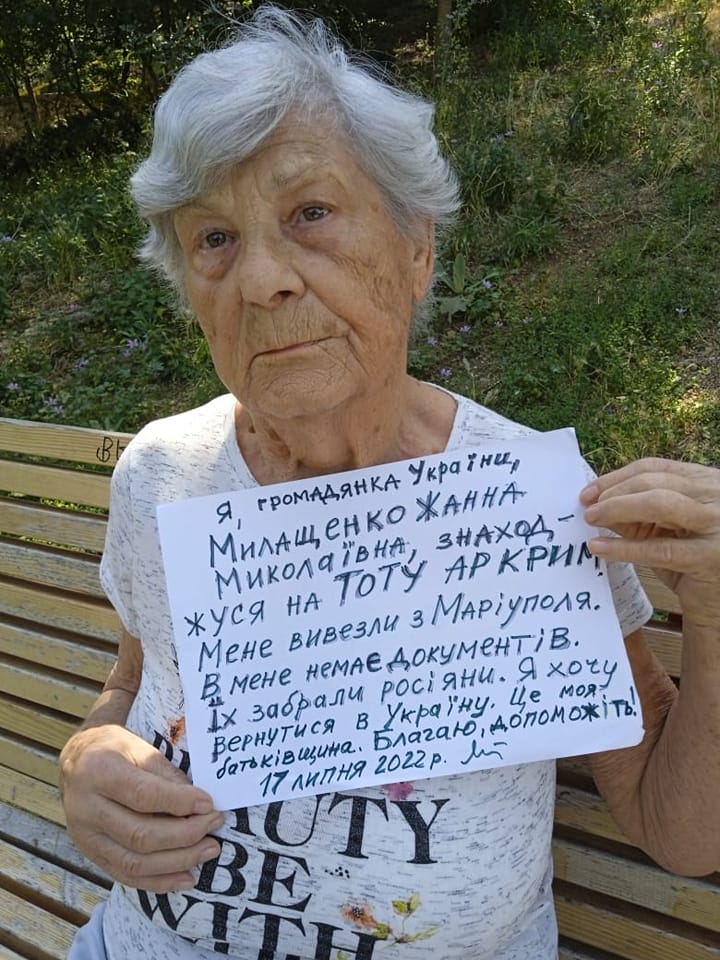 Я, ГРОМАДЯНКА УКРАЇНИ,
МИЛАЩЕНКО ЖАННА
МИКОЛАЇВНА, ЗНАХОД-
ЖУСЯ НА ТОТУ АР КРИМ.
Мене вивезли з Маріуполя.
В мене немає документів.
Їх забрали росіяни. Я хочу
вернутися в Україну. Це моя
батьківщина. Благаю, допоможіть!
17 липня 2022 р.
BEAUTY
BE
WITH